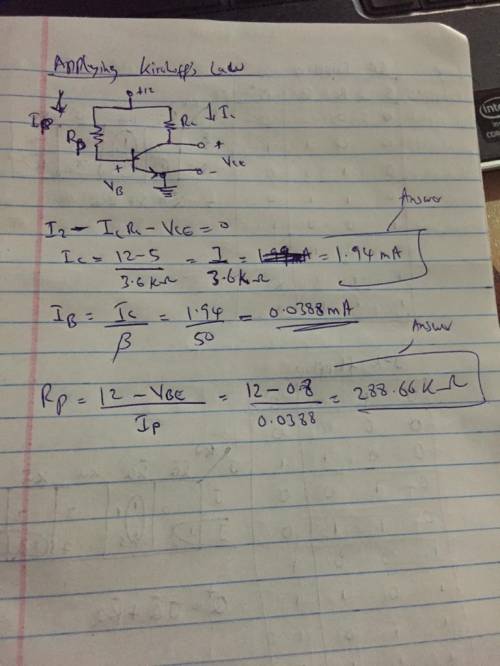 Applying Kirchoff's Law
+12
IB
RB
Rc
Ic
+
VCE
-
+
VB
12 - IcRc - VCE = 0
Ic = 12-5 / 3.6kΩ = 7 / 3.6kΩ = = 1.94 mA
Answer
IB = Ic / β = 1.94 / 50 = 0.0388mA
Answer
RB = 12 - VBE / IB = 12 - 0.8 / 0.0388 = 288.66K Ω
intel